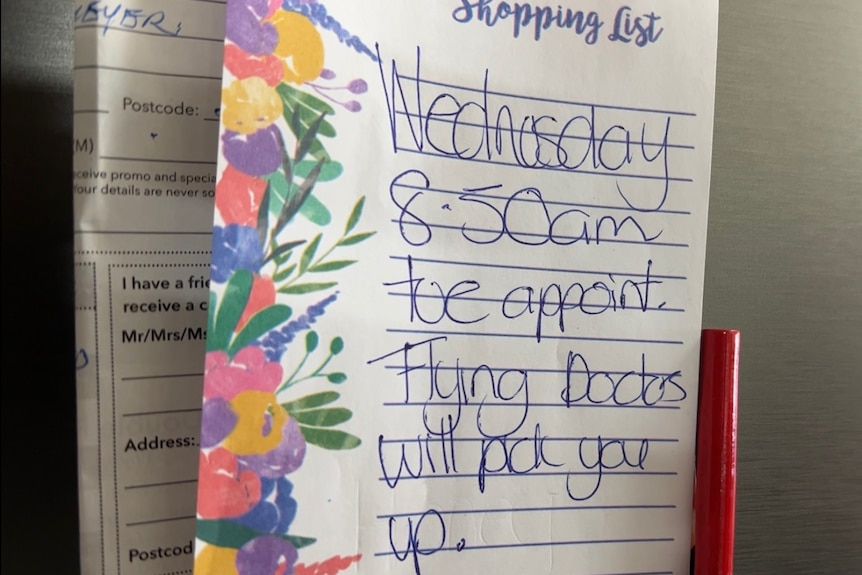 Shopping List
Wednesday
8.50am
toe appoint.
Flying Doctos
will pick you
up.
MEYER,
Postcode:
(M)
ceive promo and specia
Your details are never so
I have a frie
receive a c
Mr/Mrs/Ms
Address:
Postcod